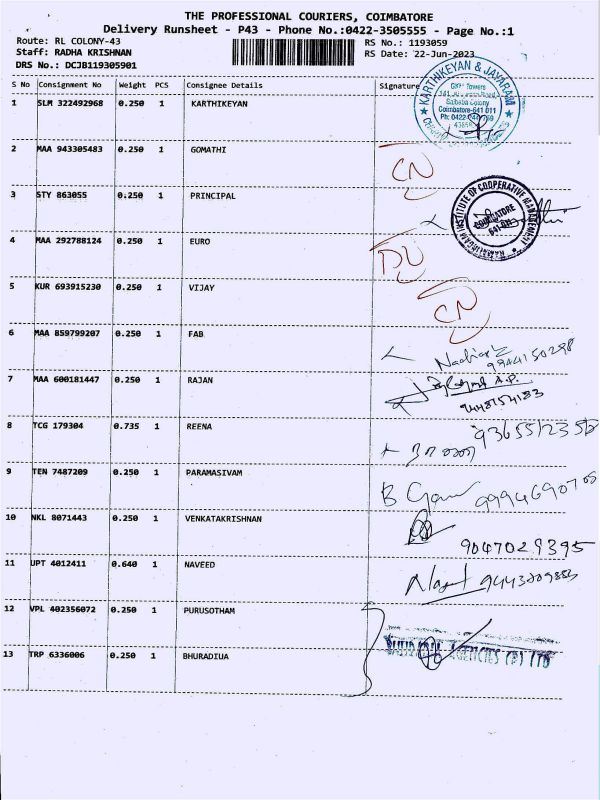 THE PROFESSIONAL COURIERS, COIMBATORE
Delivery Runsheet - P43 - Phone No.:0422-3505555 - Page No.:1
Route: RL COLONY-43
RS No.: 1193059
Staff: RADHA KRISHNAN
RS Date: 22-Jun-2023
DRS No.: DCJB119305901
S No Consignment No Weight PCS Consignee Details Signature
1 SLM 322492968 0.250 1 KARTHIKEYAN
KARTHIKEYAN & JAYARAM
Towers
Saibaba Colony
Coimbatore-641 011
2 MAA 943305483 0.250 1 GOMATHI CN
3 STY 863055 0.250 1 PRINCIPAL
INSTITUTE OF COOPERATIVE MANAGEMENT
COIMBATORE
641 011
4 MAA 292788124 0.250 1 EURO DL
5 KUR 693915230 0.250 1 VIJAY CN
6 MAA 859799207 0.250 1 FAB
9944150298
7 MAA 600181447 0.250 1 RAJAN
9448754183
8 TCG 179304 0.735 1 REENA
9365512352
9 TEN 7487209 0.250 1 PARAMASIVAM
10 NKL 8071443 0.250 1 VENKATAKRISHNAN
9047029395
11 UPT 4012411 0.640 1 NAVEED
12 VPL 402356072 0.250 1 PURUSOTHAM
AGENCIES (P) LTD
13 TRP 6336006 0.250 1 BHURADIUA